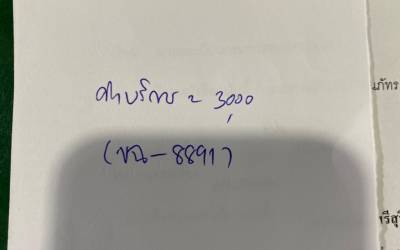 ค่าบริการ ~ 3,000
(ขฉ-8891)
ภัทร
รีสุ